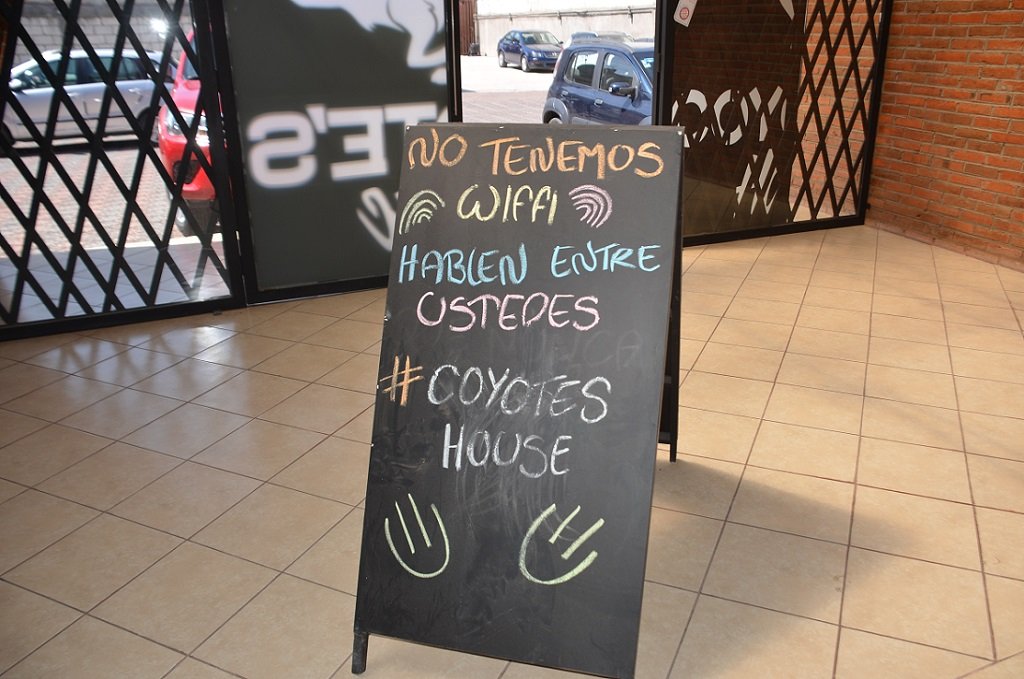 NO TENEMOS
WIFFI
HABLEN ENTRE
USTEDES
#COYOTES
HOUSE
TE'S